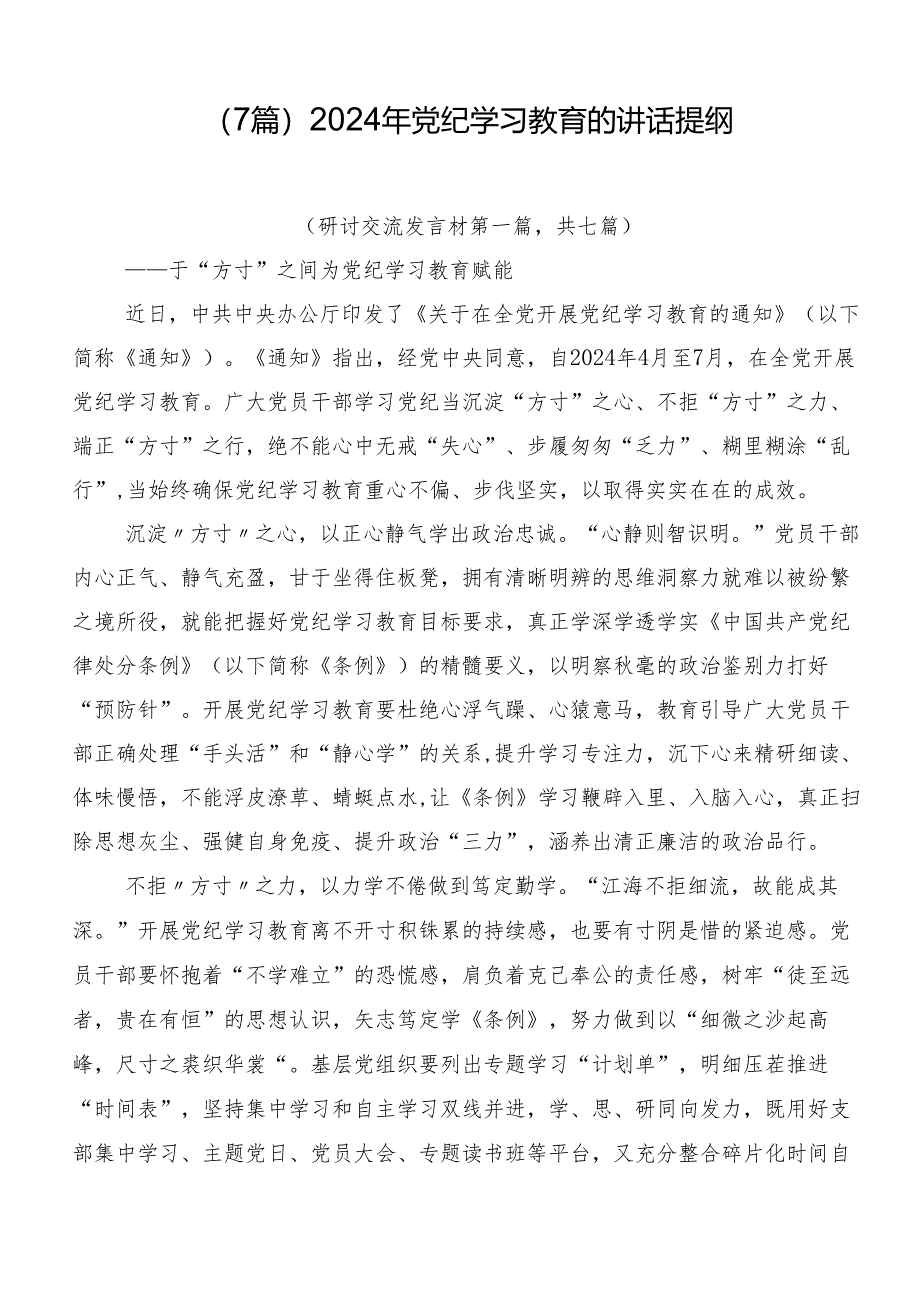 （7篇）2024年党纪学习教育的讲话提纲
（研讨交流发言材第一篇，共七篇）
——于“方寸”之间为党纪学习教育赋能
近日，中共中央办公厅印发了《关于在全党开展党纪学习教育的通知》（以下
简称《通知》）。《通知》指出，经党中央同意，自2024年4月至7月，在全党开展
党纪学习教育。广大党员干部学习党纪当沉淀“方寸”之心、不拒“方寸”之力、
端正“方寸”之行，绝不能心中无戒“失心”、步履匆匆“乏力”、糊里糊涂“乱
行”,当始终确保党纪学习教育重心不偏、步伐坚实，以取得实实在在的成效。
沉淀〃方寸〃之心，以正心静气学出政治忠诚。“心静则智识明。”党员干部
内心正气、静气充盈，甘于坐得住板凳，拥有清晰明辨的思维洞察力就难以被纷繁
之境所役，就能把握好党纪学习教育目标要求，真正学深学透学实《中国共产党纪
律处分条例》（以下简称《条例》）的精髓要义，以明察秋毫的政治鉴别力打好
“预防针”。开展党纪学习教育要杜绝心浮气躁、心猿意马，教育引导广大党员干
部正确处理“手头活”和“静心学”的关系,提升学习专注力，沉下心来精研细读、
体味慢悟，不能浮皮潦草、蜻蜓点水,让《条例》学习鞭辟入里、入脑入心，真正扫
除思想灰尘、强健自身免疫、提升政治“三力”，涵养出清正廉洁的政治品行。
不拒〃方寸〃之力，以力学不倦做到笃定勤学。“江海不拒细流，故能成其
深。”开展党纪学习教育离不开寸积铢累的持续感，也要有寸阴是惜的紧迫感。党
员干部要怀抱着“不学难立”的恐慌感，肩负着克己奉公的责任感，树牢“徒至远
者，贵在有恒”的思想认识，矢志笃定学《条例》，努力做到以“细微之沙起高
峰，尺寸之裘织华裳“。基层党组织要列出专题学习“计划单”，明细压茬推进
“时间表”，坚持集中学习和自主学习双线并进，学、思、研同向发力，既用好支
部集中学习、主题党日、党员大会、专题读书班等平台，又充分整合碎片化时间自